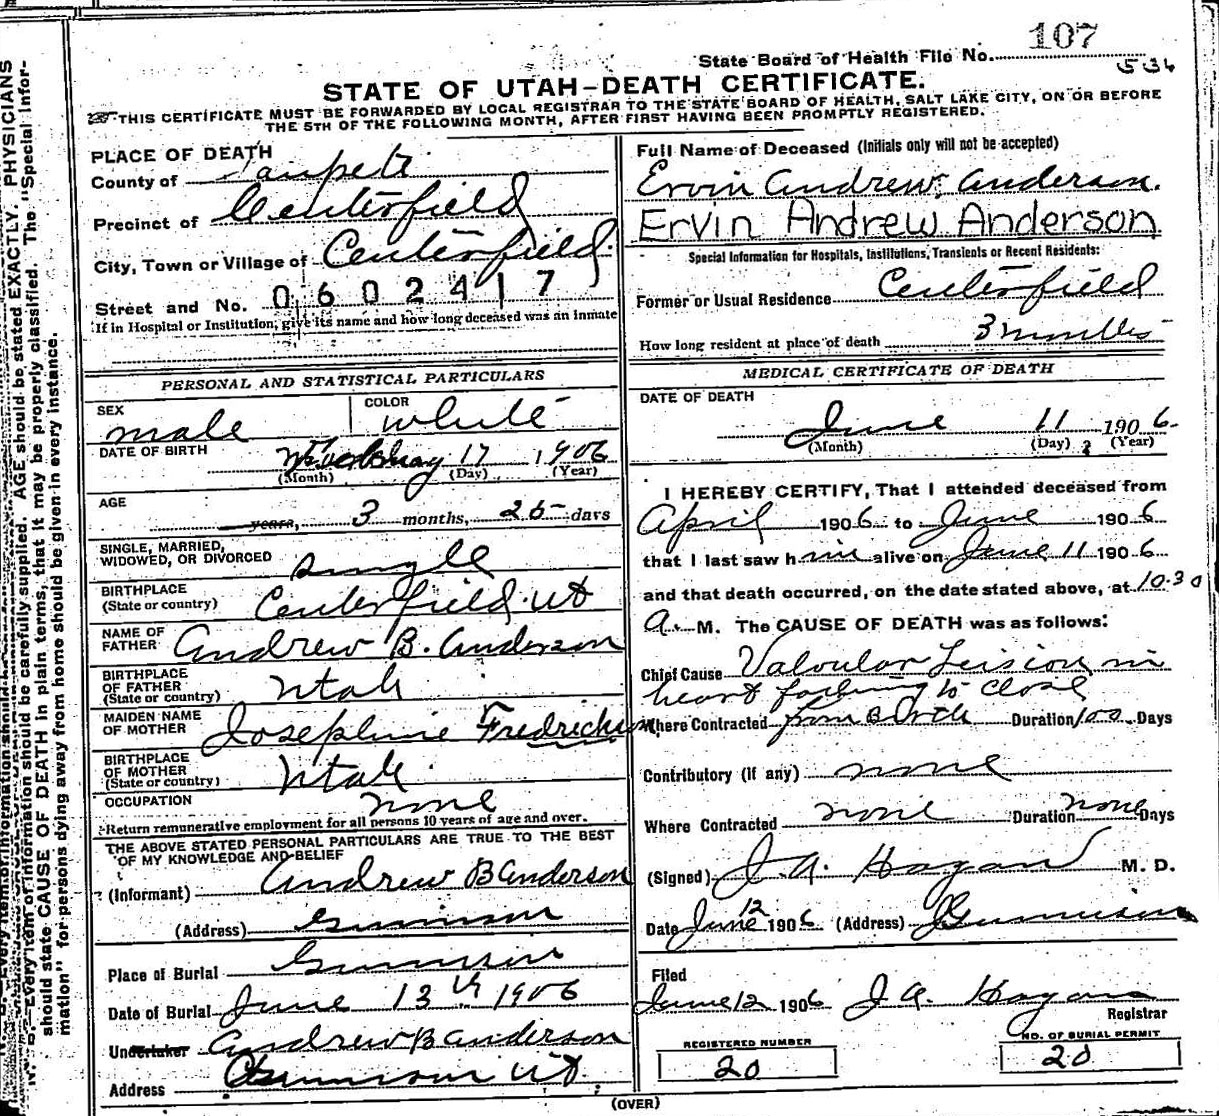 107
State Board of Health File No.
536
STATE OF UTAH—DEATH CERTIFICATE.
THIS CERTIFICATE MUST BE FORWARDED BY LOCAL REGISTRAR TO THE STATE BOARD OF HEALTH, SALT LAKE CITY, ON OR BEFORE
THE 5TH OF THE FOLLOWING MONTH, AFTER FIRST HAVING BEEN PROMPTLY REGISTERED.
PLACE OF DEATH
County of Sanpete
Precinct of Centerfield
City, Town or Village of Centerfield
Street and No. 0602417
If in Hospital or Institution, give its name and how long deceased was an inmate
PERSONAL AND STATISTICAL PARTICULARS
SEX
male
COLOR
white
DATE OF BIRTH
17 1906
(Month) (Day) (Year)
AGE
years, 3 months, 25 days
SINGLE, MARRIED,
WIDOWED, OR DIVORCED single
BIRTHPLACE
(State or country) Centerfield Ut
NAME OF
FATHER Andrew B. Anderson
BIRTHPLACE
OF FATHER
(State or country) Utah
MAIDEN NAME
OF MOTHER Josephine Fredrickson
BIRTHPLACE
OF MOTHER
(State or country) Utah
OCCUPATION none
Return remunerative employment for all persons 10 years of age and over.
THE ABOVE STATED PERSONAL PARTICULARS ARE TRUE TO THE BEST
OF MY KNOWLEDGE AND BELIEF
(Informant) Andrew B Anderson
(Address) Gunnison
Place of Burial Gunnison
Date of Burial June 13th 1906
Undertaker Andrew B Anderson
Address Gunnison Ut.
Full Name of Deceased (Initials only will not be accepted)
Ervin Andrew Anderson.
Ervin Andrew Anderson
Special Information for Hospitals, Institutions, Transients or Recent Residents:
Former or Usual Residence Centerfield
How long resident at place of death 3 months
MEDICAL CERTIFICATE OF DEATH
DATE OF DEATH
June 11 1906
(Month) (Day) (Year)
I HEREBY CERTIFY, That I attended deceased from
April 1906 to June 1906
that I last saw him alive on June 11 1906
and that death occurred, on the date stated above, at 10.30
A. M. The CAUSE OF DEATH was as follows:
Chief Cause Valvular Leision in
heart failing to close
Where Contracted from Birth Duration 100 Days
Contributory (if any) none
Where Contracted none Duration none Days
(Signed) J. A. Hagan M. D.
Date June 12 1906 (Address) Gunnison
Filed
June 12 1906 J A Hagan
Registrar
REGISTERED NUMBER
20
NO. OF BURIAL PERMIT
20
(OVER)
should state CAUSE OF DEATH in plain terms, that it may be properly classified. The "Special Infor-
mation" for persons dying away from home should be given in every instance.
N. B.—Every item of information should be carefully supplied. AGE should be stated EXACTLY. PHYSICIANS